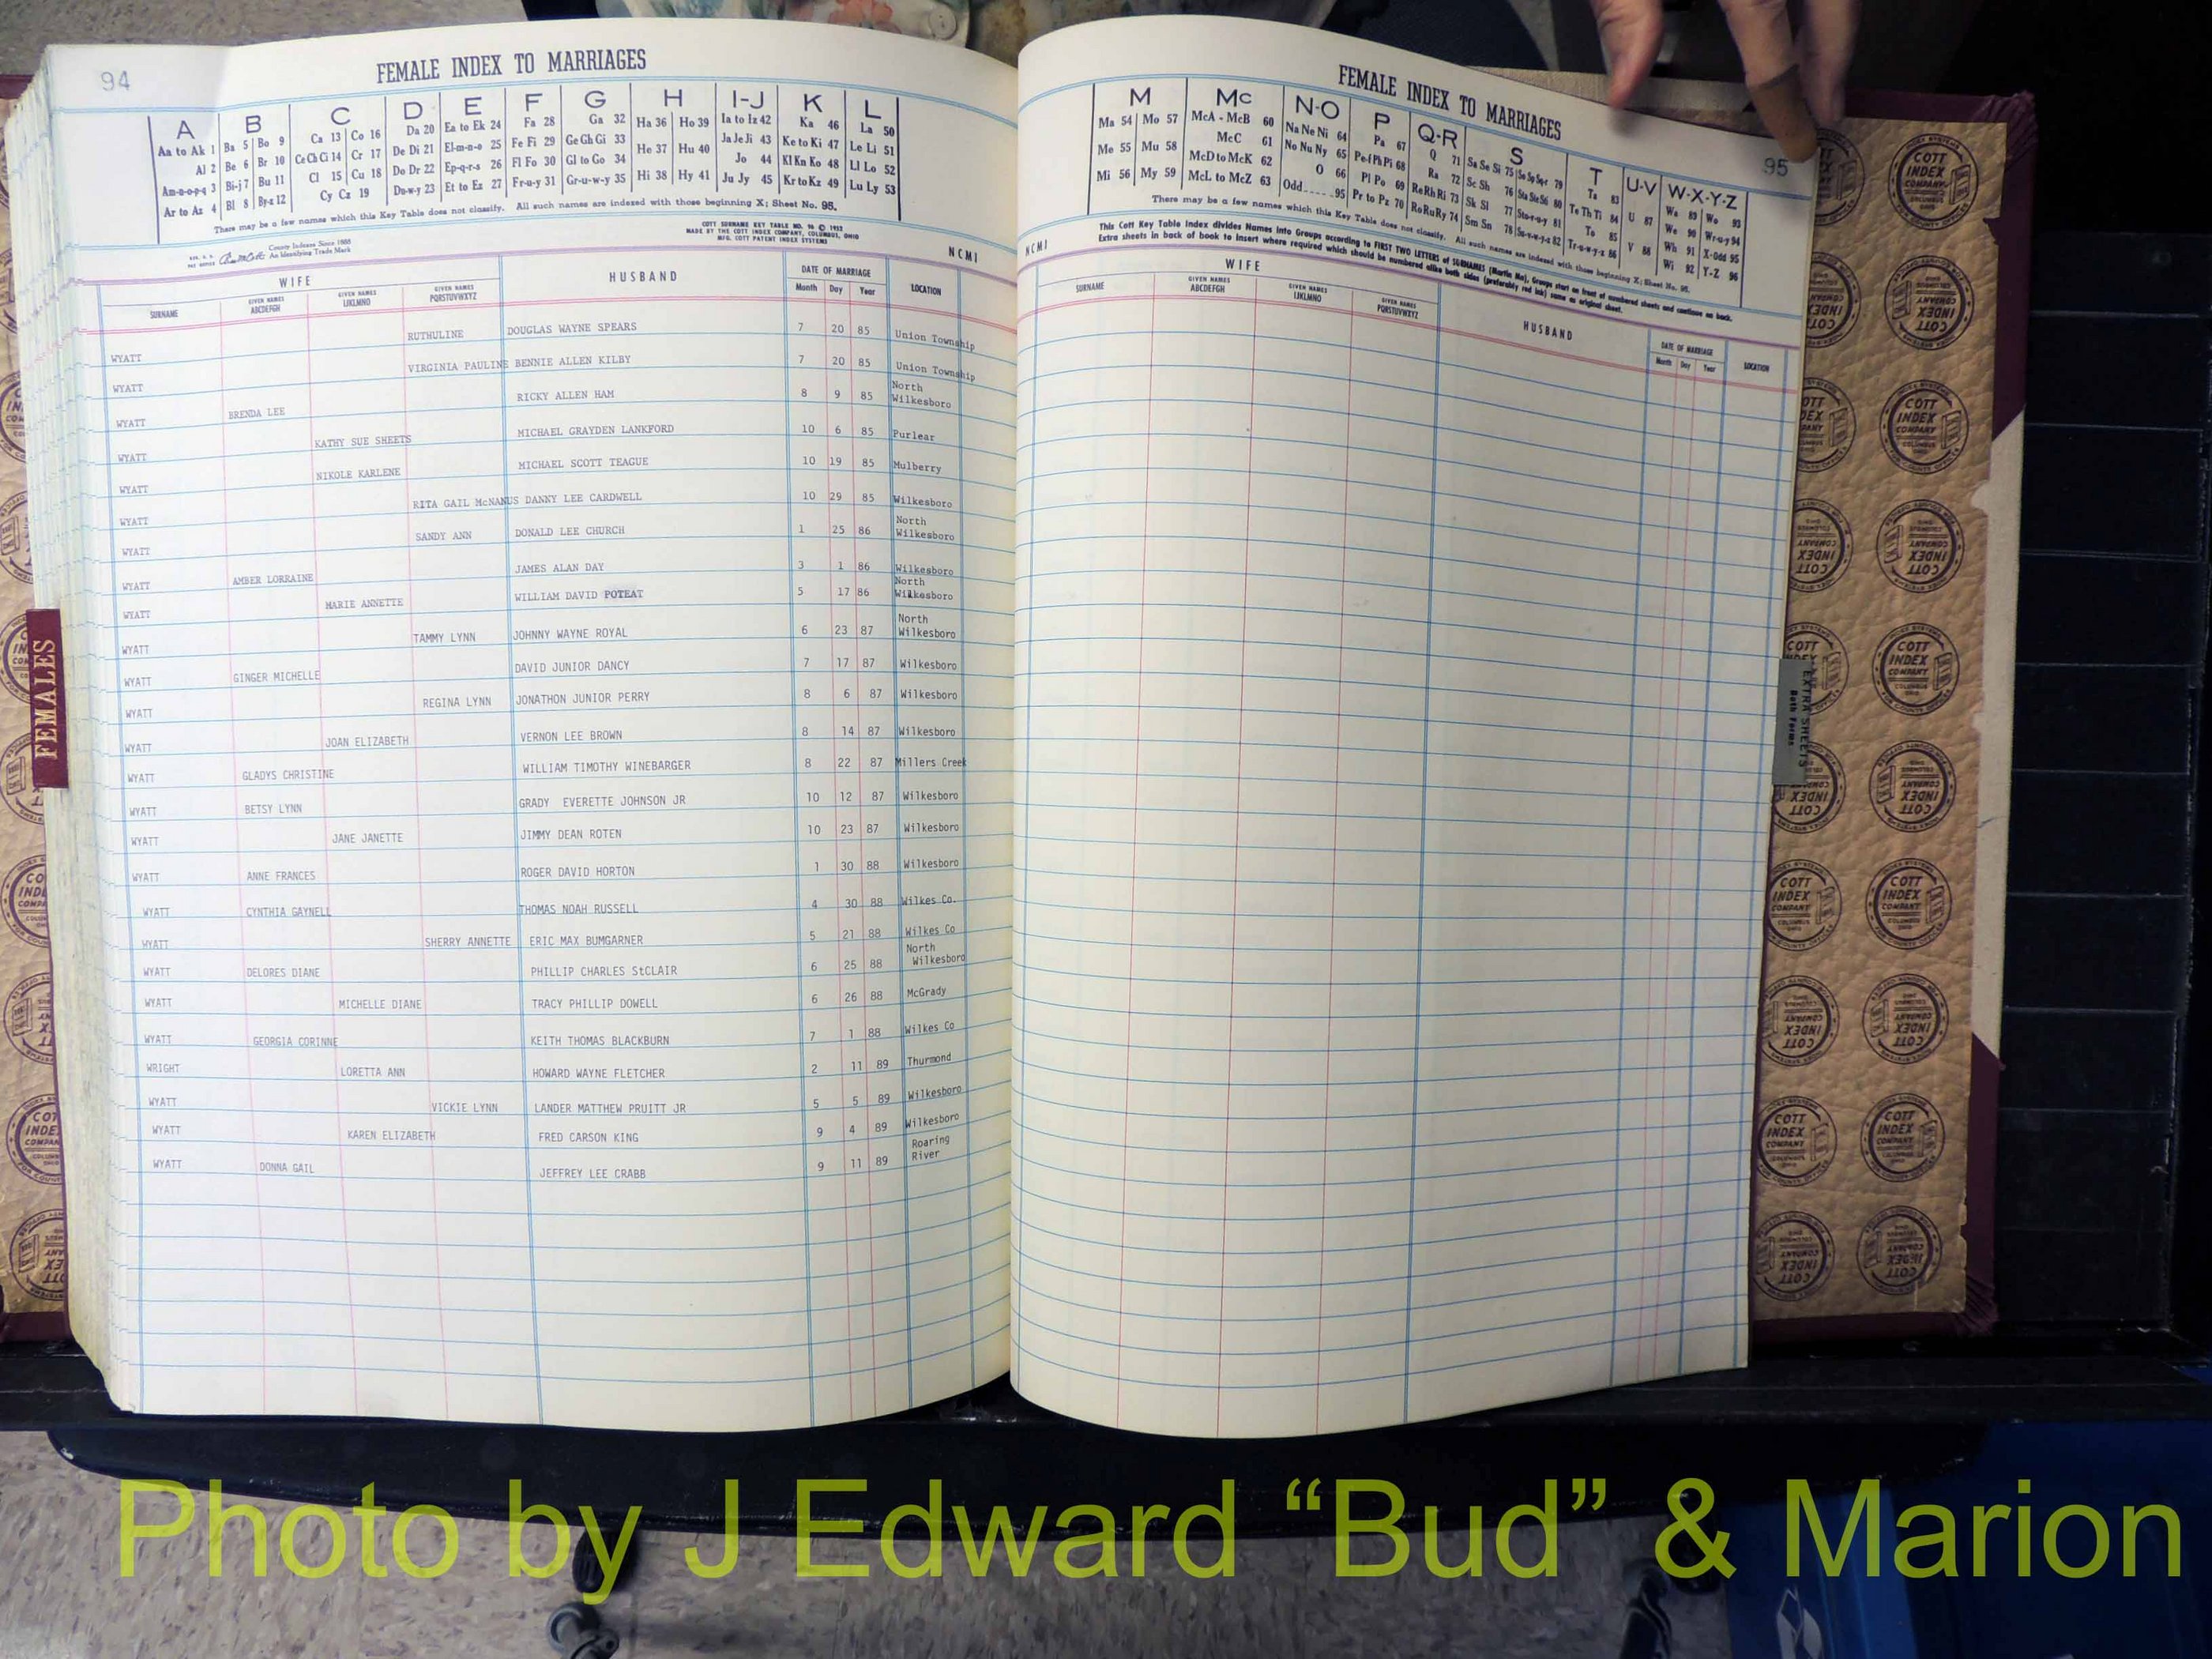 94
FEMALE INDEX TO MARRIAGES
A B C D E F G H I-J K L
Aa to Ak 1 Ba 5 Bo 9 Ca 13 Co 16 Da 20 Ea to Ek 24 Fa 28 Ga 32 Ha 36 Ho 39 Ia to Iz 42 Ka 46 La 50
Al 2 Be 6 Br 10 Ce Ch Ci 14 Cr 17 De Di 21 El-m-n-o 25 Fe Fi 29 Ge Gh Gi 33 He 37 Hu 40 Ja Je Ji 43 Ke to Ki 47 Le Li 51
Am-n-o-p-q 3 Bi-j 7 Bu 11 Cl 15 Cu 18 Do Dr 22 Ep-q-r-s 26 Fl Fo 30 Gl to Go 34 Hi 38 Hy 41 Jo 44 Kl Kn Ko 48 Ll Lo 52
Ar to Az 4 Bl 8 By-z 12 Cy Cz 19 Du-w-y 23 Et to Ez 27 Fr-u-y 31 Gr-u-w-y 35 Ju Jy 45 Kr to Kz 49 Lu Ly 53
There may be a few names which this Key Table does not classify. All such names are indexed with those beginning X; Sheet No. 95.
County Indexes Since 1888
An Identifying Trade Mark
COTT SURNAME KEY TABLE NO. 96 © 1952
MADE BY THE COTT INDEX COMPANY, COLUMBUS, OHIO
MFG. COTT PATENT INDEX SYSTEMS
NCMI
WIFE HUSBAND DATE OF MARRIAGE LOCATION
SURNAME GIVEN NAMES ABCDEFGH GIVEN NAMES IJKLMNO GIVEN NAMES PQRSTUVWXYZ Month Day Year
WYATT RUTHULINE DOUGLAS WAYNE SPEARS 7 20 85 Union Township
WYATT VIRGINIA PAULINE BENNIE ALLEN KILBY 7 20 85 Union Township
WYATT BRENDA LEE RICKY ALLEN HAM 8 9 85 North Wilkesboro
WYATT KATHY SUE SHEETS MICHAEL GRAYDEN LANKFORD 10 6 85 Purlear
WYATT NIKOLE KARLENE MICHAEL SCOTT TEAGUE 10 19 85 Mulberry
WYATT RITA GAIL McNANUS DANNY LEE CARDWELL 10 29 85 Wilkesboro
WYATT SANDY ANN DONALD LEE CHURCH 1 25 86 North Wilkesboro
WYATT AMBER LORRAINE JAMES ALAN DAY 3 1 86 Wilkesboro
WYATT MARIE ANNETTE WILLIAM DAVID POTEAT 5 17 86 North Wilkesboro
WYATT TAMMY LYNN JOHNNY WAYNE ROYAL 6 23 87 North Wilkesboro
WYATT GINGER MICHELLE DAVID JUNIOR DANCY 7 17 87 Wilkesboro
WYATT REGINA LYNN JONATHON JUNIOR PERRY 8 6 87 Wilkesboro
WYATT JOAN ELIZABETH VERNON LEE BROWN 8 14 87 Wilkesboro
WYATT GLADYS CHRISTINE WILLIAM TIMOTHY WINEBARGER 8 22 87 Millers Creek
WYATT BETSY LYNN GRADY EVERETTE JOHNSON JR 10 12 87 Wilkesboro
WYATT JANE JANETTE JIMMY DEAN ROTEN 10 23 87 Wilkesboro
WYATT ANNE FRANCES ROGER DAVID HORTON 1 30 88 Wilkesboro
WYATT CYNTHIA GAYNELL THOMAS NOAH RUSSELL 4 30 88 Wilkes Co.
WYATT SHERRY ANNETTE ERIC MAX BUMGARNER 5 21 88 Wilkes Co
WYATT DELORES DIANE PHILLIP CHARLES StCLAIR 6 25 88 North Wilkesboro
WYATT MICHELLE DIANE TRACY PHILLIP DOWELL 6 26 88 McGrady
WYATT GEORGIA CORINNE KEITH THOMAS BLACKBURN 7 1 88 Wilkes Co
WRIGHT LORETTA ANN HOWARD WAYNE FLETCHER 2 11 89 Thurmond
WYATT VICKIE LYNN LANDER MATTHEW PRUITT JR 5 5 89 Wilkesboro
WYATT KAREN ELIZABETH FRED CARSON KING 9 4 89 Wilkesboro
WYATT DONNA GAIL JEFFREY LEE CRABB 9 11 89 Roaring River
FEMALES
95
FEMALE INDEX TO MARRIAGES
M Mc N-O P Q-R S T U-V W-X-Y-Z
Ma 54 Mo 57 McA - McB 60 Na Ne Ni 64 Pa 67 Q 71 Sa Se Si 75 So Sp Sq-r 79 Ta 83 U 87 Wa 89 Wo 93
Me 55 Mu 58 McC 61 No Nu Ny 65 Pe-f Ph Pi 68 Ra 72 Sc Sh 76 Sta Ste Sti 80 Te Th Ti 84 V 88 We 90 Wr-u-y 94
Mi 56 My 59 McD to McK 62 O 66 Pl Po 69 Re Rh Ri 73 Sk Sl 77 Sto-r-u-y 81 To 85 Wh 91 X-Odd 95
McL to McZ 63 Odd 95 Pr to Pz 70 Ro Ru Ry 74 Sm Sn 78 Su-v-w-y-z 82 Tr-u-w-y-z 86 Wi 92 Y-Z 96
There may be a few names which this Key Table does not classify. All such names are indexed with those beginning X; Sheet No. 95.
This Cott Key Table Index divides Names into Groups according to FIRST TWO LETTERS of SURNAMES (Martin Ma). Groups start on front of numbered sheets and continue on back.
Extra sheets in back of book to insert where required which should be numbered alike both sides (preferably red ink) same as original sheet.
NCMI
WIFE HUSBAND DATE OF MARRIAGE LOCATION
SURNAME GIVEN NAMES ABCDEFGH GIVEN NAMES IJKLMNO GIVEN NAMES PQRSTUVWXYZ Month Day Year
EXTRA SHEETS
Both Forms
COTT INDEX COMPANY
Photo by J Edward “Bud” & Marion